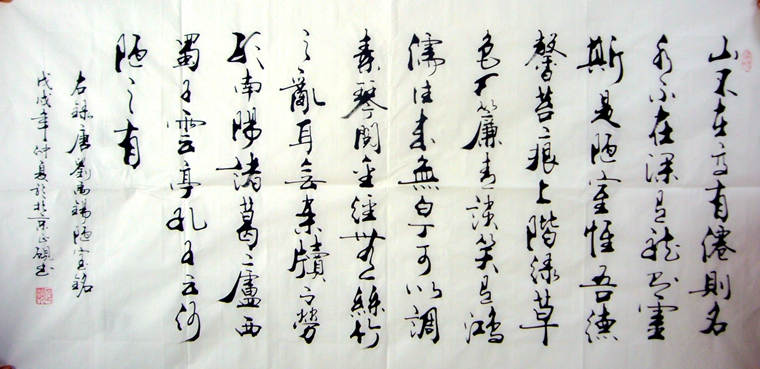 山不在高有僊則名
水不在深有龍則靈
斯是陋室惟吾德
馨苔痕上階綠草
色入簾青談笑有鴻
儒往來無白丁可以調
素琴閱金經無絲竹
之亂耳無案牘之勞
形南陽諸葛之廬西
蜀子雲亭孔子云何
陋之有
右錄唐劉禹錫陋室銘
戊戌年仲夏於北京